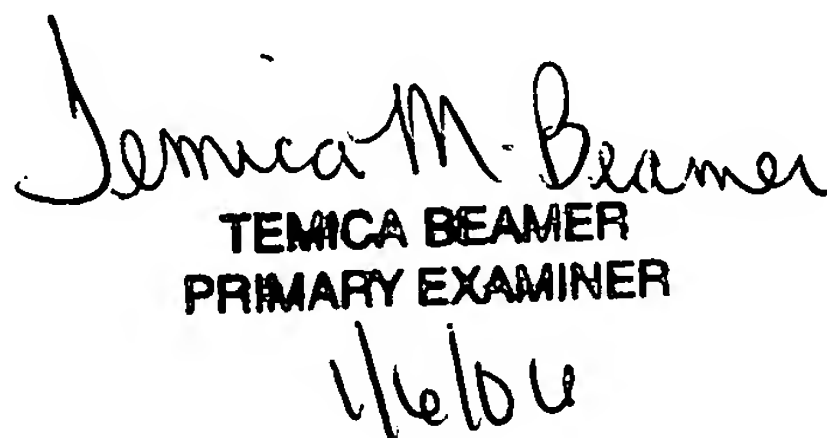 Temica M. Beamer
TEMICA BEAMER
PRIMARY EXAMINER
1/6/06